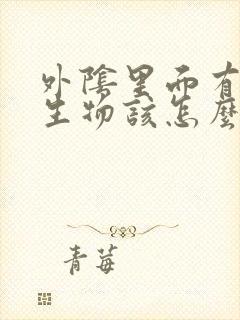 外陰里面有
生物該怎麼
青莓